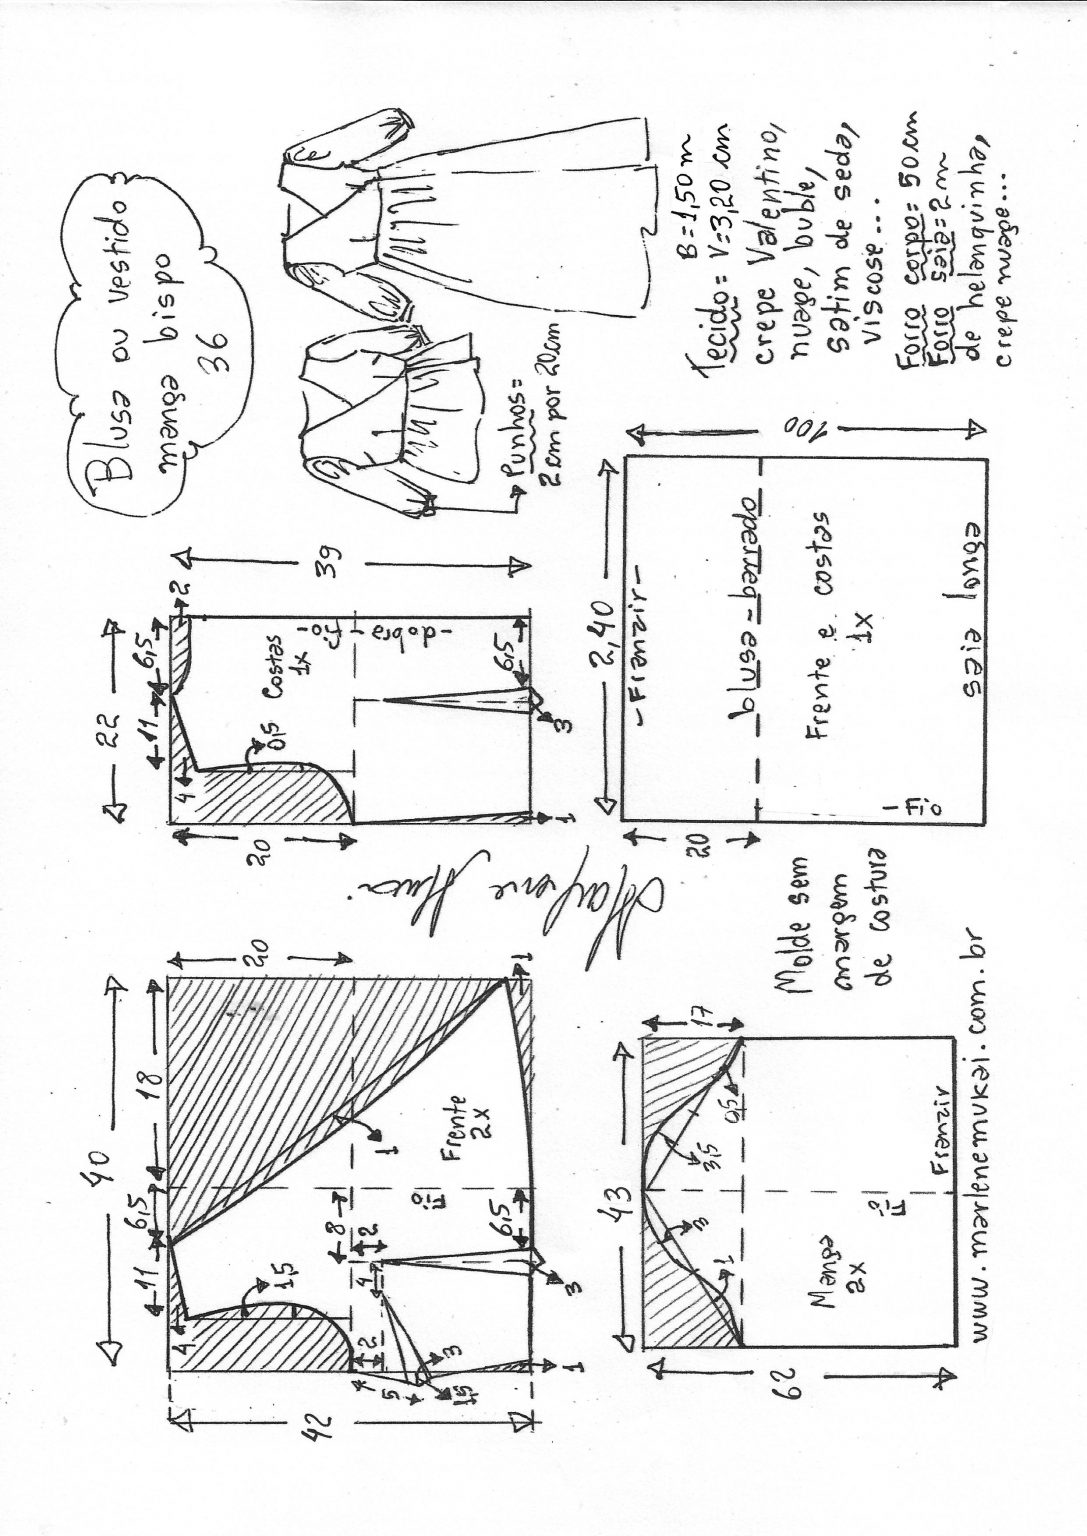 Blusa ou vestido
manga bispo
36
Punhos=
2cm por 20cm
B=1,50m
Tecido= V=3,20cm
crepe Valentino,
nuage, buble,
satim de seda,
viscose...
Forro corpo=50cm
Forro saia=2m
de helanquinha,
crepe nuage...
40
11
6,5
18
4
1,5
20
42
1
8
2
4
2
Frente
2x
Fio
6,5
5
3
1,5
3
1
1
22
11
6,5
2
4
0,5
20
39
Costas
1x
Fio
-dobra-
6,5
3
1
Marlene Mukai
43
17
3
3,5
1
0,5
62
Manga
2x
Fio
Franzir
Molde sem
margem
de costura
2,40
-Franzir-
20
100
blusa-barrado
Frente e costas
1x
Fio
saia longa
www.marlenemukai.com.br